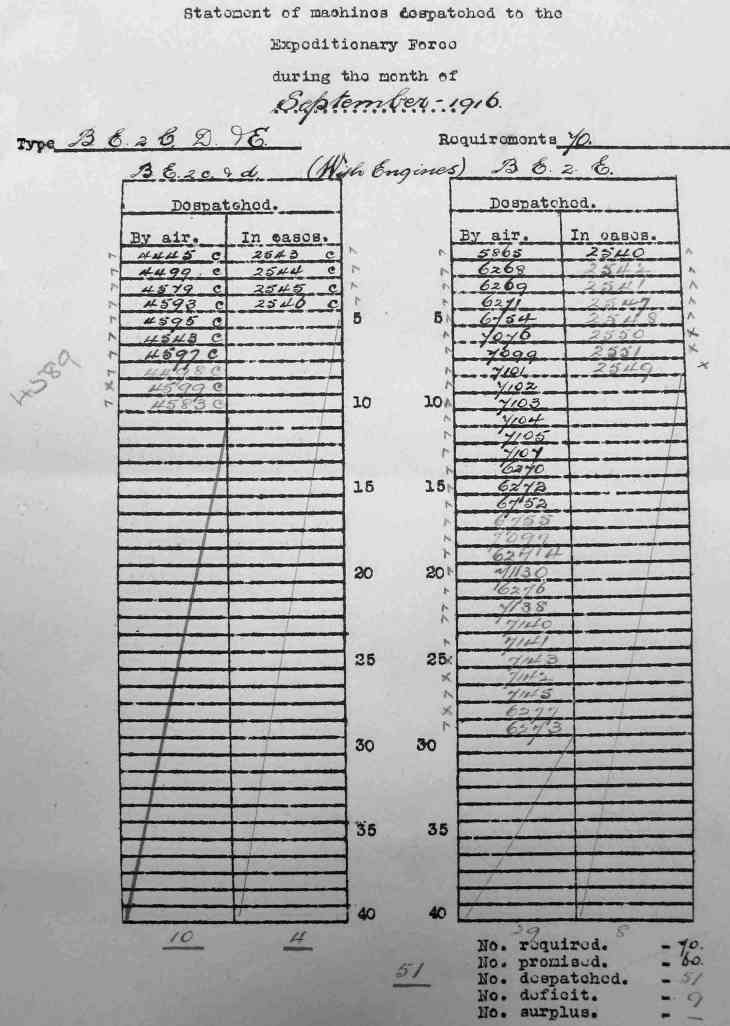 Statement of machines despatched to the
Expeditionary Force
during the month of
September - 1916.
Type B E. 2 C, D, & E.
Requirements 70.
B E. 2 c. & d. (With Engines) B E. 2 E.
Despatched. Despatched.
By air. In cases. By air. In cases.
4445 c 2543 c 5865 2540
4499 c 2544 c 6268 2542
4579 c 2545 c 6269 2541
4593 c 2546 c 6271 2547
5 4595 c 5 6754 2548
4543 c 7076 2550
4597 c 7099 2551
c 7101 2549
4599 c 7102
10 4583 c 10 7103
7104
7105
7107
6270
15 15 6272
6752
6755
7097
20 20 7130
6276
7138
7140
7141
25 25 7143
7142
7145
6277
6573
30 30
35 35
40 40
4589
10 4 29 8
51
No. required. - 70.
No. promised. - 60.
No. despatched. - 51
No. deficit. - 9
No. surplus. - —